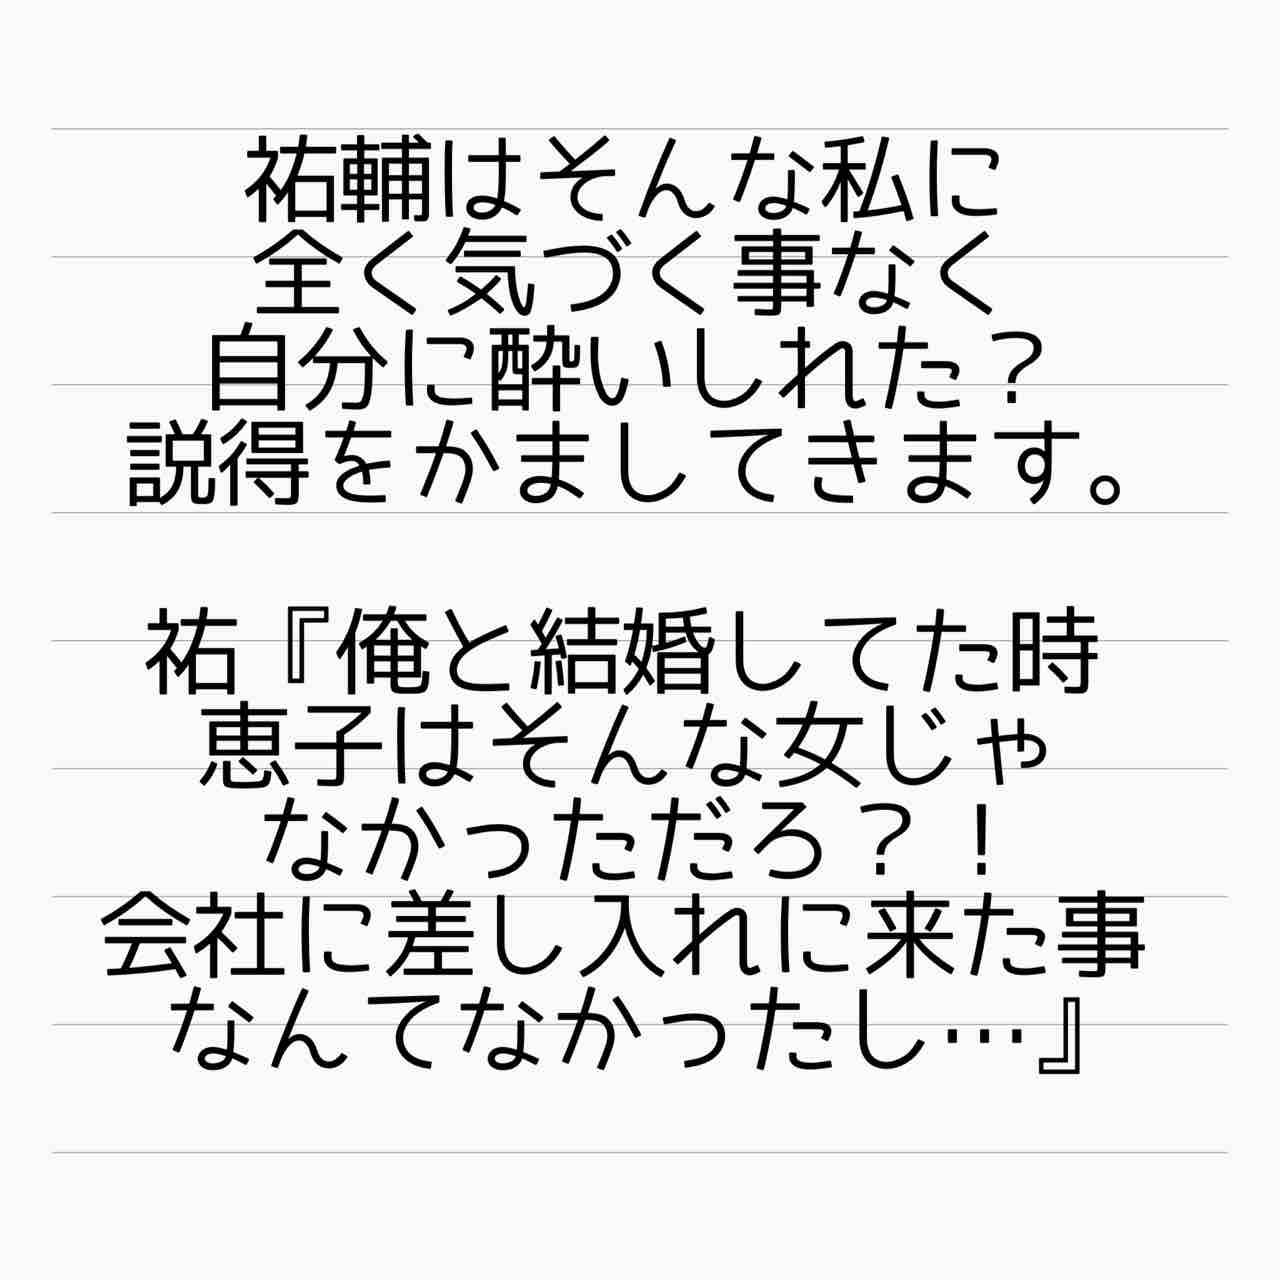 祐輔はそんな私に
全く気づく事なく
自分に酔いしれた？
説得をかましてきます。
祐『俺と結婚してた時
恵子はそんな女じゃ
なかっただろ？！
会社に差し入れに来た事
なんてなかったし…』